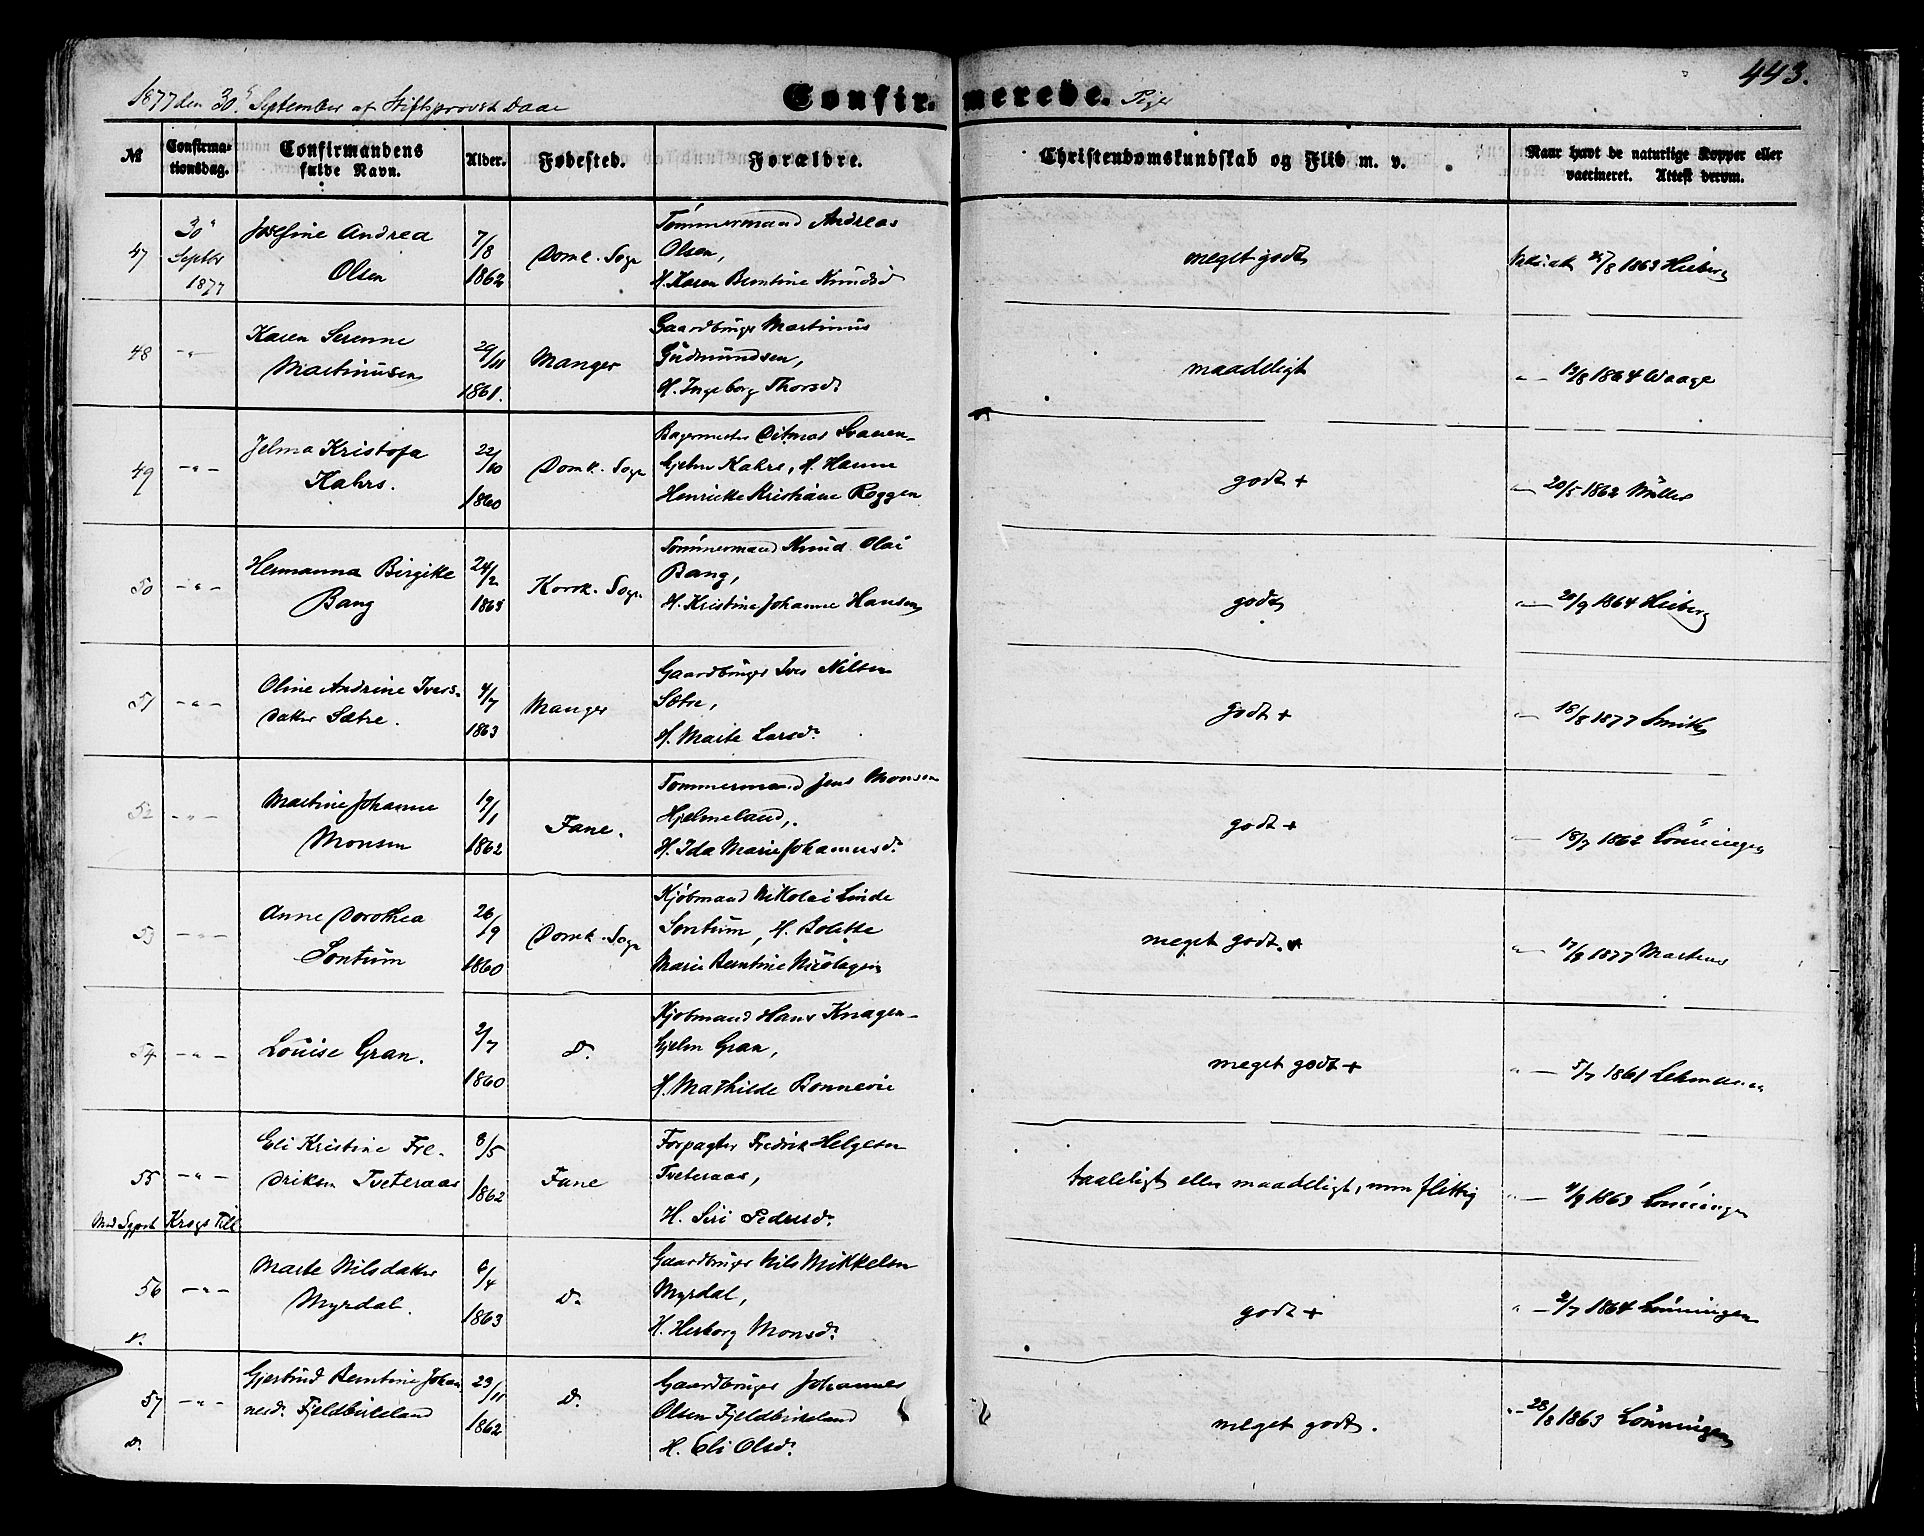 443.
1877 den 30te September af Stiftsprovst Daae
Confirmerede. Piger
№
Confirmationsdag.
Confirmandens fulde Navn.
Alder.
Fødested.
Forældre.
Christendomskundskab og Flid m. v.
Naar havt de naturlige Kopper eller vaccineret. Attest derom.
47 30" Septbr 1877 Josefine Andrea Olsen 7/8 1862 Domk. Sogn Tømmermand Andreas Olsen, H. Karen Berntine Knudsd. meget godt 1863 Heiberg
48 -"- Karen Serenne Martinusen 29/11 1861. Manger Gaardbruger Martinus Gudmundsen, H. Ingeborg Thorsd. maadeligt "— 13/8 1864 Waage
49 -"- Jelma Kristofa Kahrs. 22/10 1860 Domk. Sogn Bagermester Ditmar Svanenhjelm Kahrs, H. Hanne Henrikke Kristiane Roggen godt + "— 20/5 1862 Müller
50 -"- Hermanna Birgitte Bang 24/2 1863 Korsk. Sogn Tømmermand Knud Olai Bang, H. Kristine Johanne Hansen godt "— 1864 Heiberg
51 -"- Oline Andrine Iversdatter Sætre. 4/7 1863 Manger Gaardbruger Iver Nilsen Sætre, H. Marte Larsd. godt + "— 18/8 1877 Smith
52 -"- Martine Johanne Monsen 19/1 1862 Fane. Tømmermand Jens Monsen Hjelmeland, H. Ida Marie Johannesd. godt + — 18/7 1862 Lønningen
53 -"- Anne Dorothea Sontum 26/9 1860 Domk. Sogn Kjøbmand Nikolai Linde Sontum, H. Bolette Marie Berntine Nicolaysen meget godt + "— 17/9 1877 Martens
54 -"- Louise Gran. 2/7 1860 D. Kjøbmand Hans Knagenhjelm Gran, H. Mathilde Bonnevie meget godt + "— 5/7 1861 Lehmann
55 -"- Eli Kristine Fredriksen Tveteraas 8/5 1862 Fane Forpagter Fredrik Helgesen Tveteraas, H. Siri Pedersd. taaleligt eller maadeligt, men flittig "— 1863 Lønningen
Med Sgprst Krogs Till.
56 -"- Marte Nilsdatter Myrdal. 6/4 1863 D. Gaardbruger Nils Mikkelsen Myrdal, H. Herborg Monsd. godt + "— 2/7 1864 Lønningen
D.
57 -"- Gjertrud Berntine Johannesd. Fjeldbirkeland 23/11 1862 D. Gaardbruger Johannes Olsen Fjeldbirkeland H. Eli Olsd. meget godt. "— 28/8 1863 Lønningen
D.